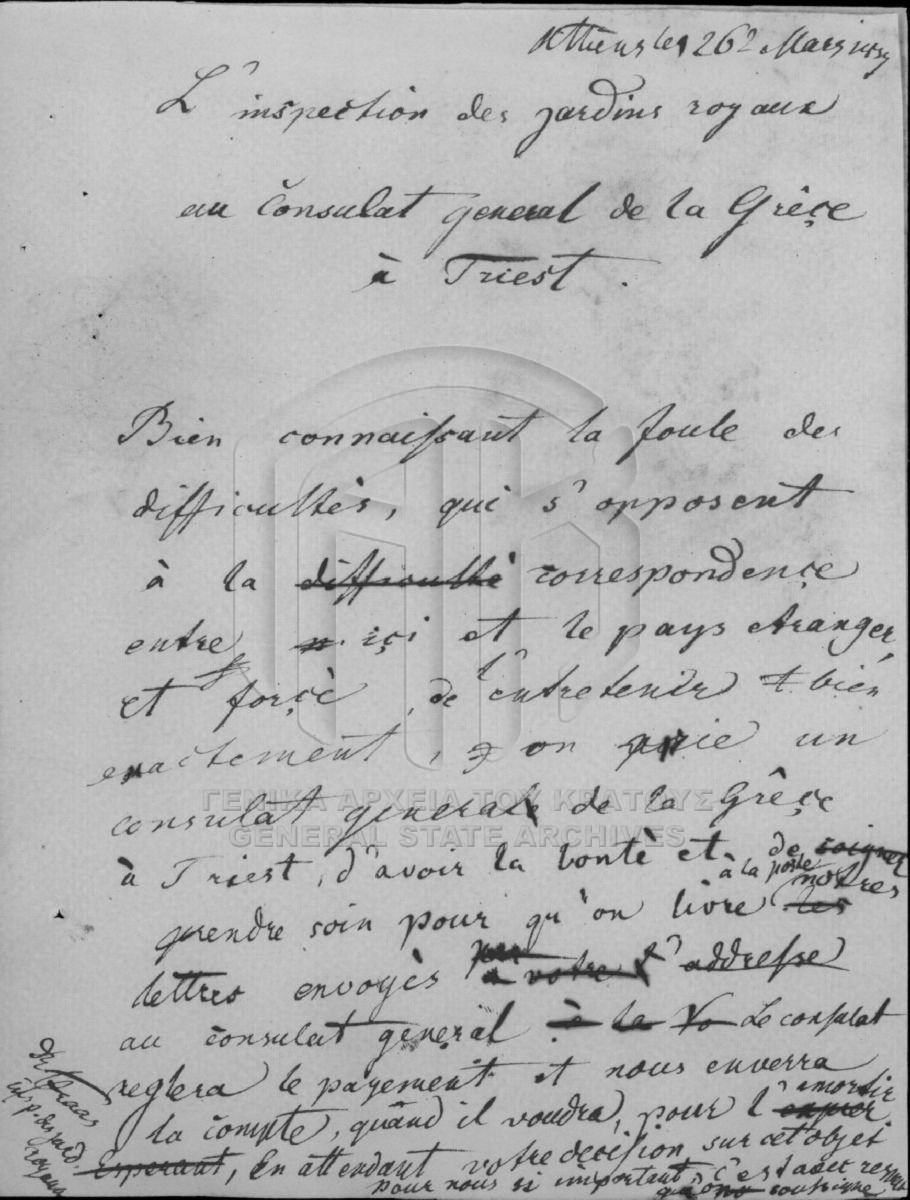 Athènes le 26 Mars
L'inspection des jardins royaux
au Consulat general de la Grêçe
à Triest.
Bien connaissant la foule des
difficultès, qui s'opposent
à la difficultè correspondençe
entre içi et le pays etranger,
et forçè, de l'entretenir bien
exactement, on prie un
consulat general de la Grêçe
à Triest, d'avoir la bontè et de soigner
prendre soin pour qu'on livre à la poste les notres
lettres envoyès par a votre l'addresse
au consulat general à la Vo Le consulat
reglera le payement et nous enverra
la compte, quand il voudra, pour l'amortir
Esperant, En attendant votre decision sur cet objet
pour nous si important, c'est avec
que soussigne
Dr Fraas
insp. des jard.
royaux
ΓΕΝΙΚΑ ΑΡΧΕΙΑ ΤΟΥ ΚΡΑΤΟΥΣ
GENERAL STATE ARCHIVES